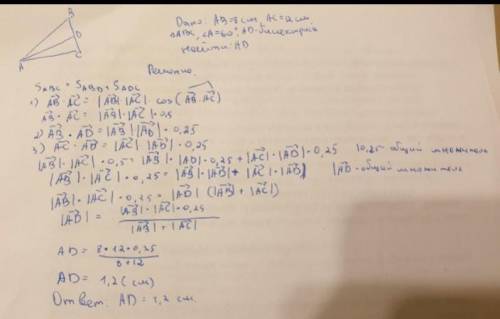 B
D
C
A
Дано: AB=8 см, AC=12 см
△ABC, ∠A=60°, AD-биссектриса
Найти: AD
Решение
S_ABC = S_ABD + S_ADC
1) AB⃗·AC⃗ = |AB⃗|·|AC⃗|·cos(AB⃗·AC⃗)
AB⃗·AC⃗ = |AB⃗|·|AC⃗|·0,5
2) AB⃗·AD⃗=|AB⃗|·|AD⃗|·0,25
3) AC⃗·AD⃗=|AC⃗|·|AD⃗|·0,25
|AB⃗|·|AC⃗|·0,5=|AB⃗|·|AD⃗|·0,25+|AC⃗|·|AD⃗|·0,25 |0,25 общий множитель
|AB⃗|·|AC⃗|·0,25=|AB⃗|·|AD⃗|+|AC⃗|·|AD⃗| |AD-общий множитель
|AB⃗|·|AC⃗|·0,25=|AD⃗|(|AB⃗|+|AC⃗|)
|AD⃗| = |AB⃗|·|AC⃗|·0,25
|AB⃗|+|AC⃗|
AD = 8*12*0,25
8+12
AD = 1,2 (см)
Ответ: AD=1,2 см.